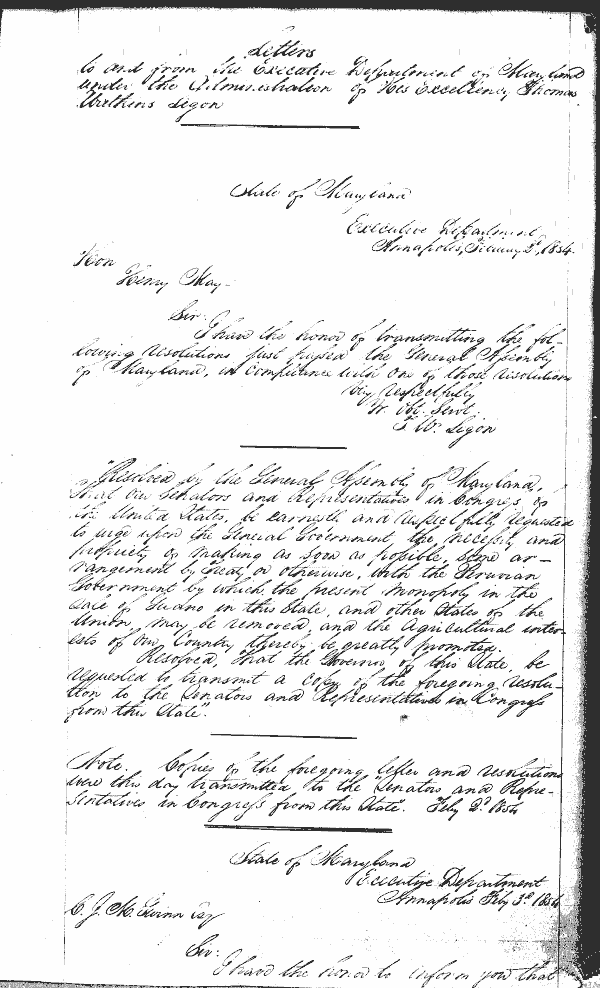 Letters
to and from the Executive Department of Maryland
under the Administration of His Excellency Thomas
Watkins Ligon
State of Maryland
Executive Department
Annapolis, February 2d, 1854.
Hon
Henry May
Sir:
I have the honor of transmitting the fol-
lowing resolutions just passed the General Assembly
of Maryland, in compliance with one of those resolutions
Very respectfully
Yr. Obt. Servt.
T. W. Ligon
"Resolved by the General Assembly of Maryland,
That our Senators and Representatives in Congress of
the United States, be earnestly and respectfully requested
to urge upon the General Government the necessity and
propriety of making as soon as possible some ar-
rangement by Treaty or otherwise, with the Peruvian
Government by which the present monopoly in the
sale of Guano in this State, and other States of the
Union, may be removed, and the Agricultural inter-
ests of our Country thereby be greatly promoted.
Resolved, That the Governor of this State, be
requested to transmit a copy of the foregoing resolu-
tion to the Senators and Representatives in Congress
from this State".
Note. Copies of the foregoing letter and resolutions
were this day transmitted to the "Senators and Repre-
sentatives in Congress from this State". Feby 2d 1854
State of Maryland
Executive Department
Annapolis Feby 3d 1854
C. J. M. Gwinn Esq
Sir:
I have the honor to inform you that